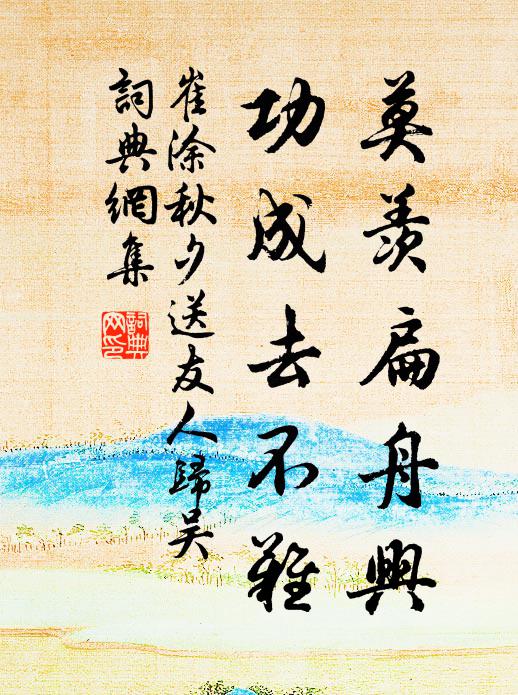 莫羨扁舟興
功成去不難
崔涂秋夕送友人歸吳
詞典網集
詞典網印